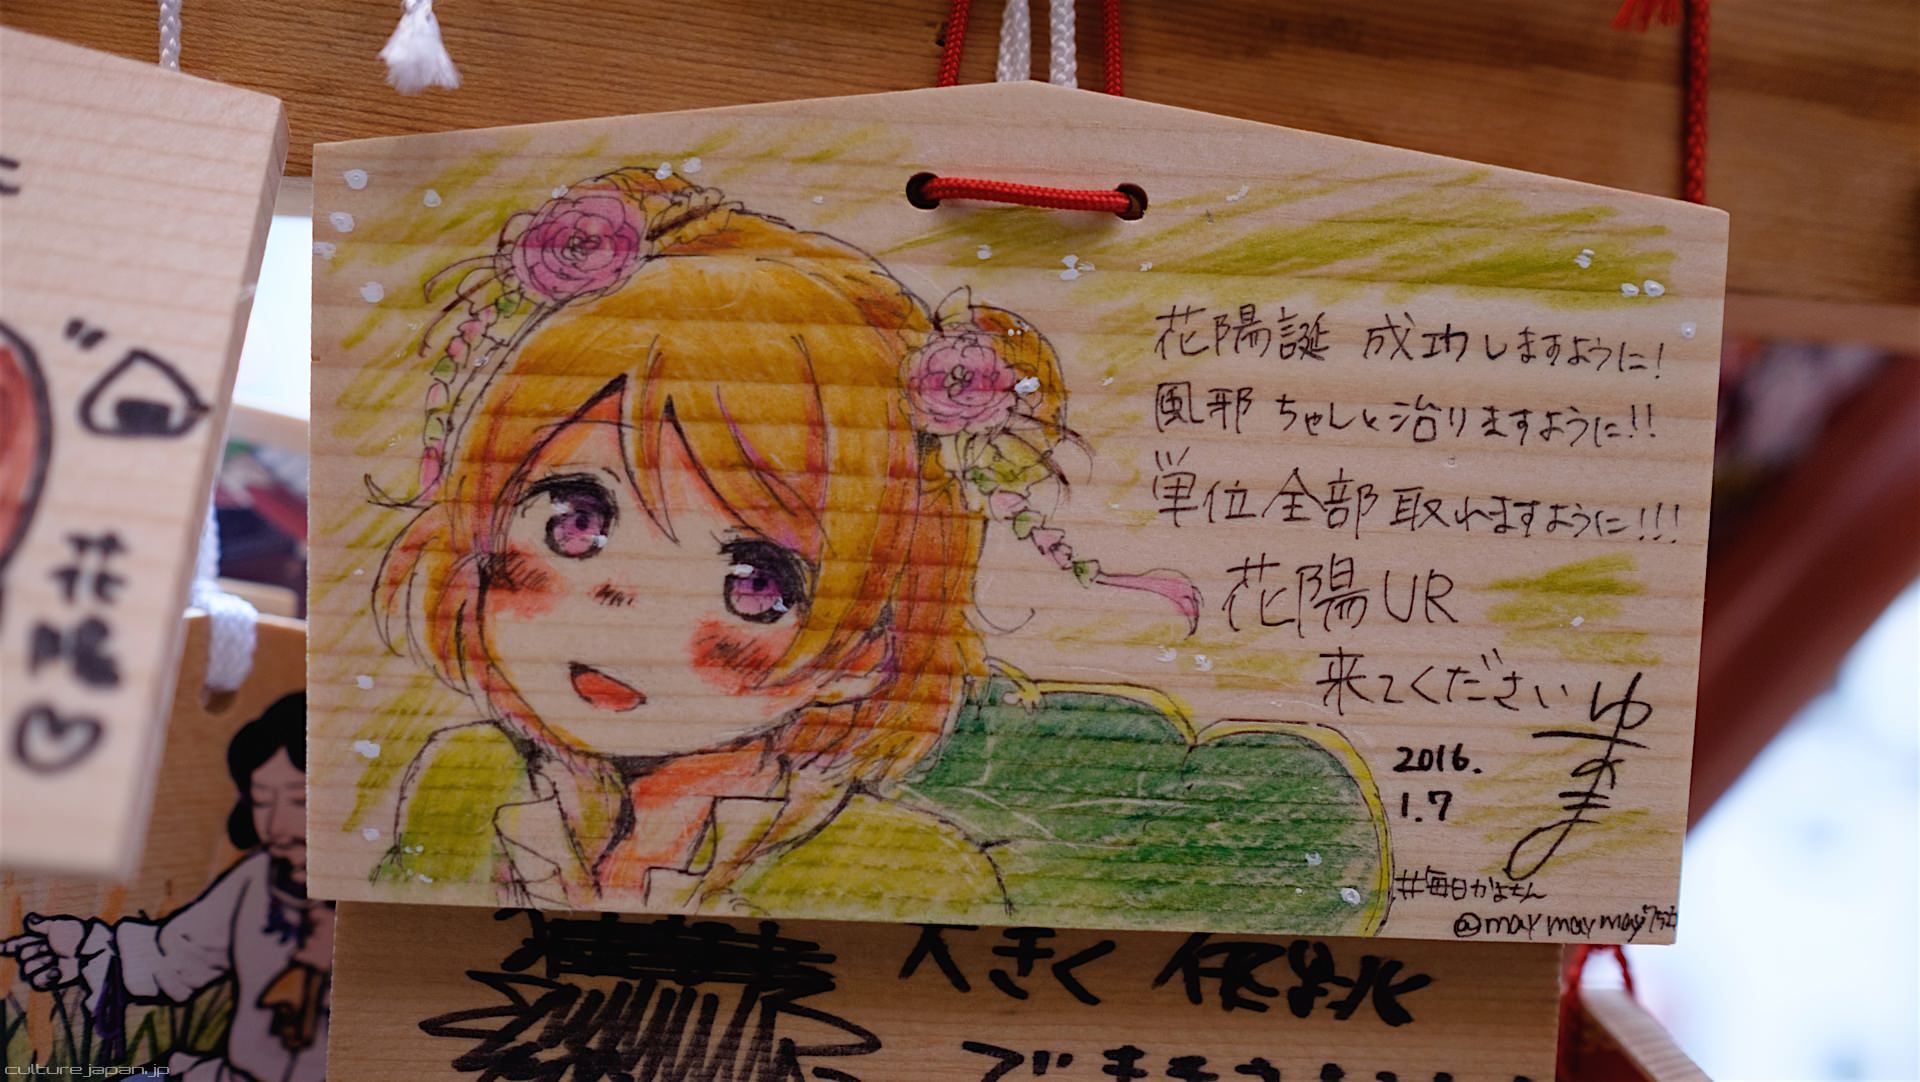 花陽誕 成功しますように!
風邪 ちゃんと治りますように!!
単位全部取れますように!!!
花陽UR
来てください
ゆずま
2016.
1.7
#毎日かよちん
花陽♡
大きく
culturejapan.jp